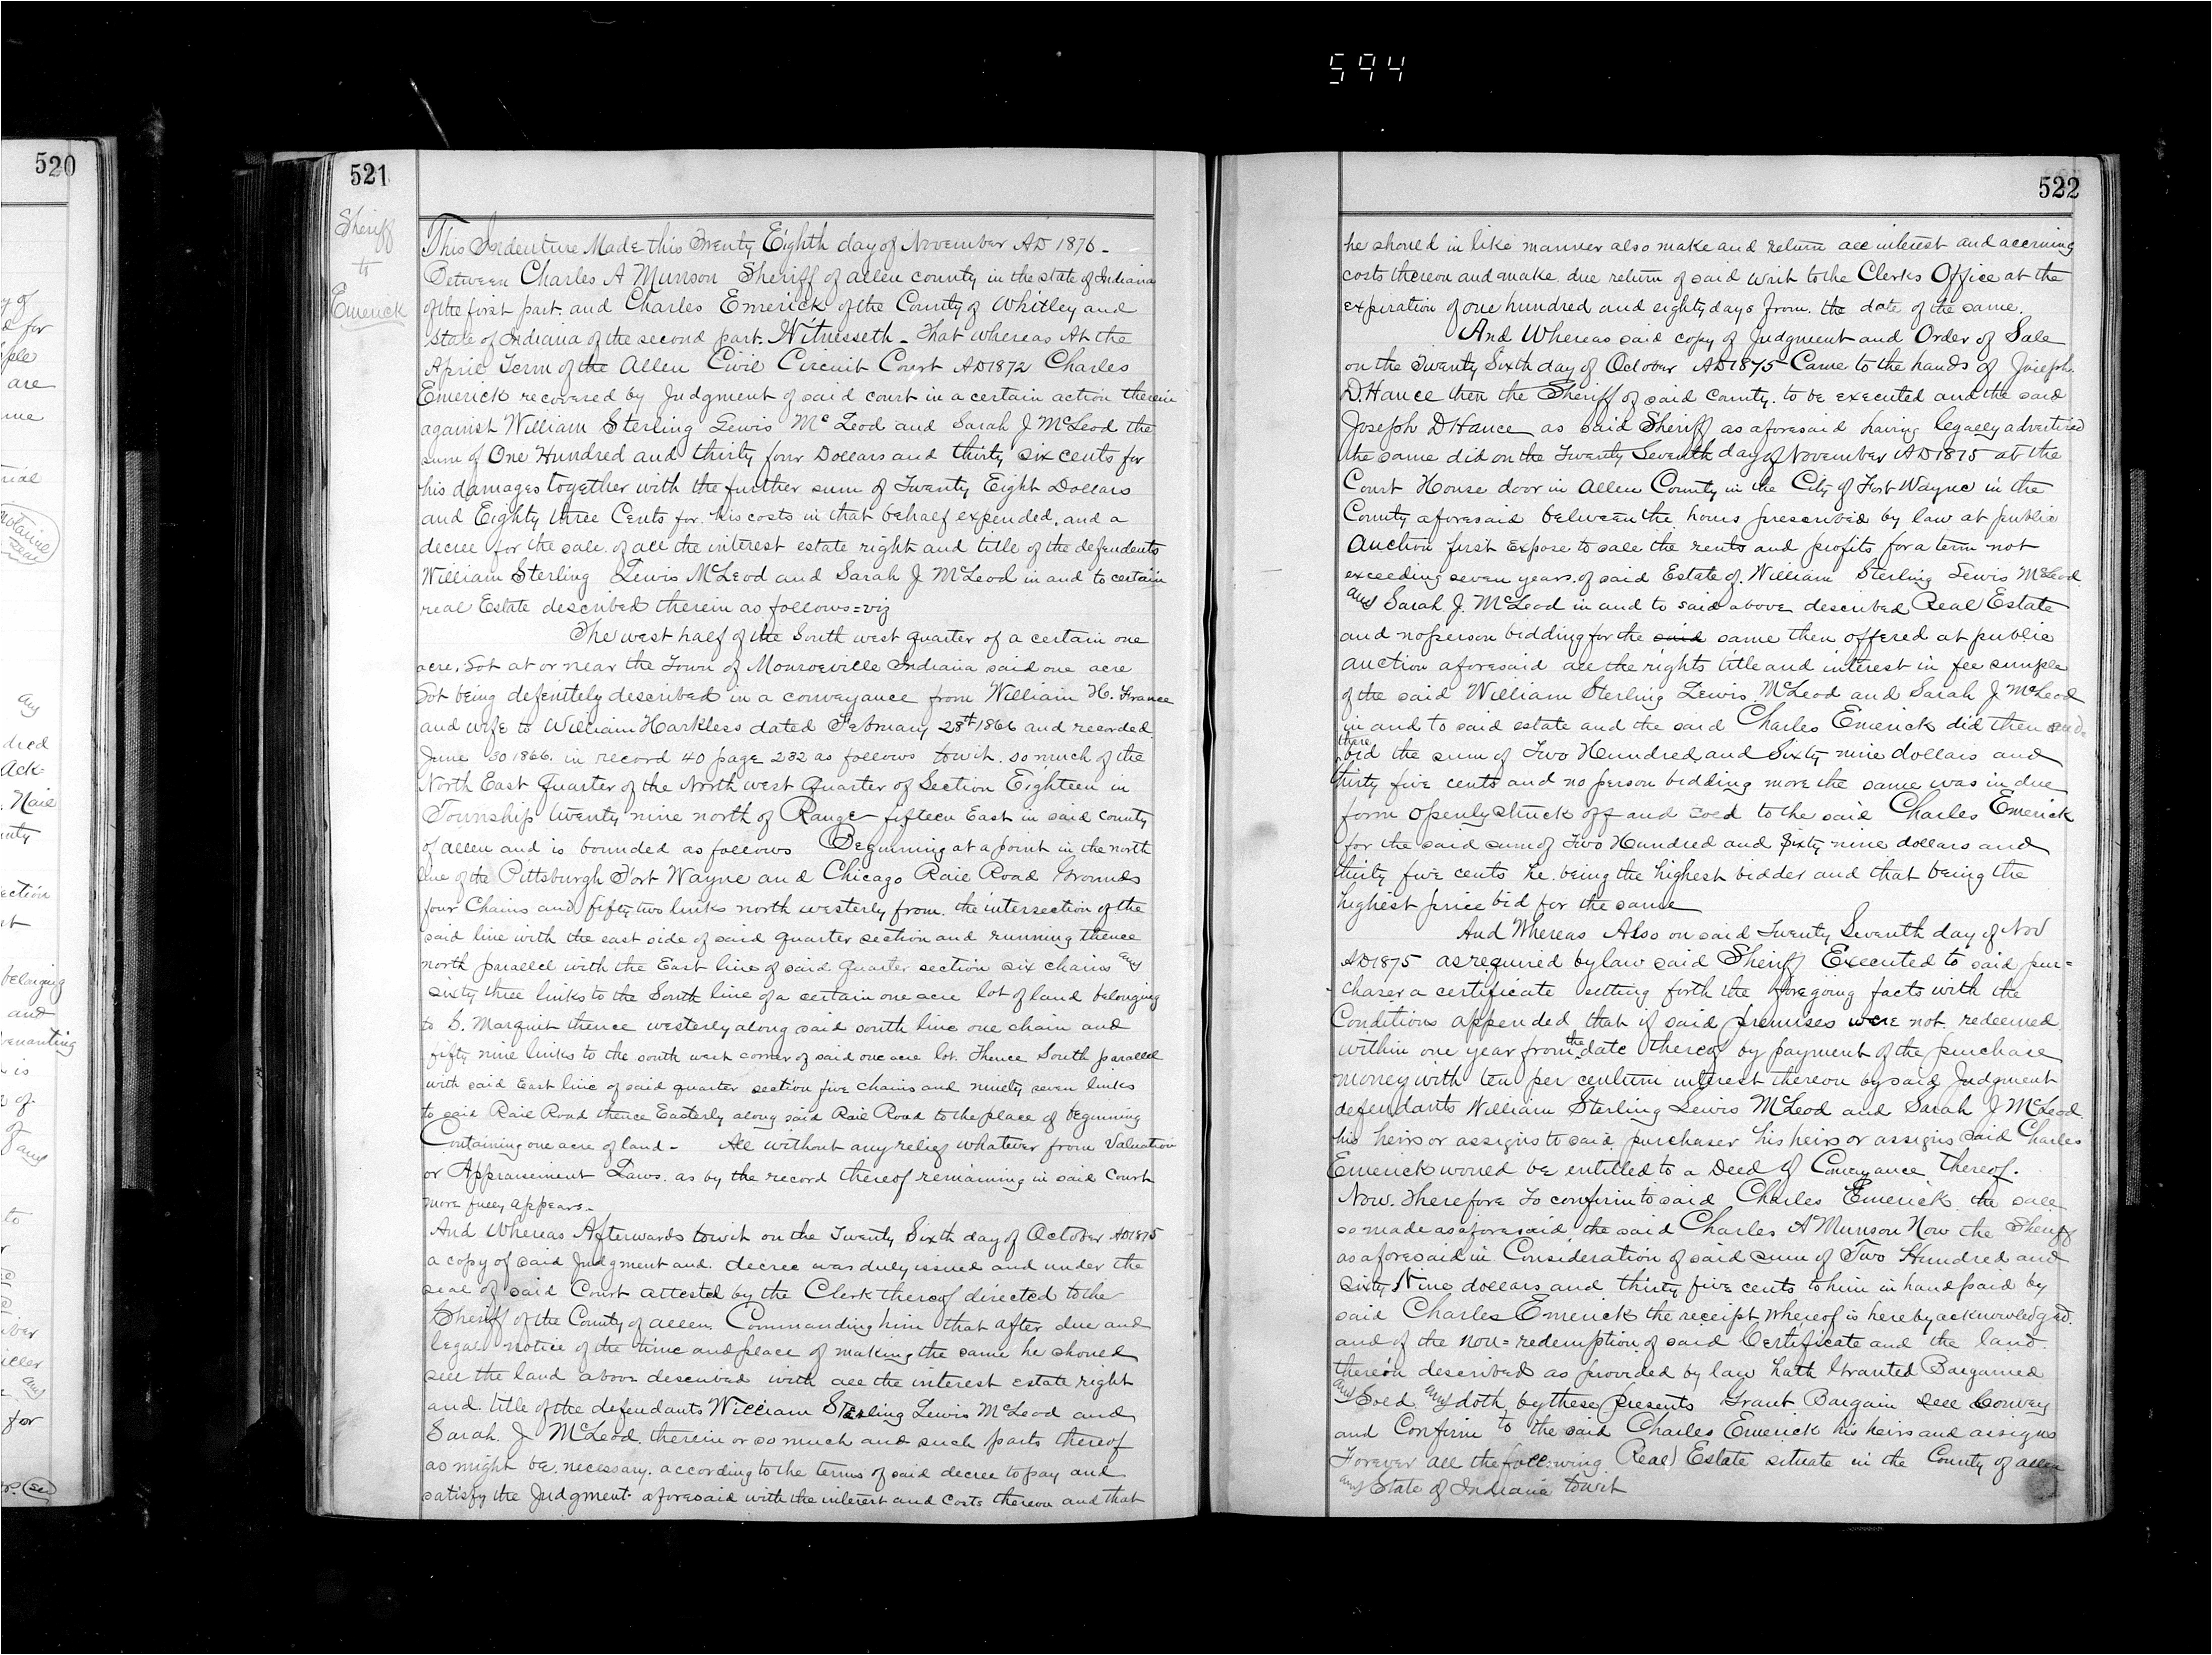 594
520
521
Sheriff
to
Emerick
This Indenture Made this Twenty Eighth day of November AD 1876 -
Between Charles A Munson Sheriff of allen county in the state of Indiana
of the first part. and Charles Emerick of the County of Whitley and
State of Indiana of the second part. Witnesseth - That whereas At the
April Term of the Allen Civil Circuit Court AD 1872 Charles
Emerick recovered by Judgment of said court in a certain action therein
against William Sterling Lewis McLeod and Sarah J McLeod the
sum of One Hundred and thirty four Dollars and thirty six cents for
his damages together with the further sum of Twenty Eight Dollars
and Eighty three Cents for his costs in that behalf expended, and a
decree for the sale of all the interest estate right and title of the defendents
William Sterling Lewis McLeod and Sarah J McLeod in and to certain
real Estate described therein as follows = viz
The west half of the South west quarter of a certain one
acre. Lot at or near the Town of Monroeville Indiana said one acre
Lot being defenitely described in a conveyance from William H. France
and wife to William Harkless dated February 28th 1866 and recorded
June 30 1866. in record 40 page 232 as follows towit. so much of the
North East Quarter of the North west Quarter of Section Eighteen in
Township twenty nine north of Range fifteen East in said county
of allen and is bounded as follows Beginning at a point in the north
line of the Pittsburgh Fort Wayne and Chicago Rail Road Grounds
four Chains and fifty two links north westerly from. the intersection of the
said line with the east side of said quarter section and running thence
north parallel with the East line of said quarter section six chains and
sixty three links to the South line of a certain one acre lot of land belonging
to S. Marquit thence westerly along said south line one chain and
fifty nine links to the south west corner of said one acre lot. Thence South parallel
with said East line of said quarter section five chains and ninety seven links
to said Rail Road thence Easterly along said Rail Road to the place of beginning
Containing one acre of land - All without any relief whatever from Valuation
or Appraisement Laws. as by the record thereof remaining in said Court
more fully appears.
And Whereas Afterwards towit on the Twenty Sixth day of October AD 1875
a copy of said Judgment and decree was duly issued and under the
seal of said Court attested by the Clerk thereof directed to the
Sheriff of the County of allen. Commanding him that after due and
legal notice of the time and place of making the same he should
sell the land above described with all the interest estate right
and title of the defendants William Sterling Lewis McLeod and
Sarah J McLeod. therein or so much and such parts thereof
as might be necessary. according to the terms of said decree to pay and
satisfy the Judgment aforesaid with the interest and costs thereon and that
522
he should in like manner also make and return all interest and accruing
costs thereon and make due return of said writ to the Clerks Office at the
expiration of one hundred and eighty days from. the date of the same.
And Whereas said copy of Judgment and Order of Sale
on the Twenty Sixth day of Octover AD 1875 Came to the hands of Joseph
D Hance then the Sheriff of said county. to be executed and the said
Joseph D Hance as said Sheriff as aforesaid having legally advertised
the same did on the Twenty Seventh day of November AD 1875 at the
Court House door in Allen County in the City of Fort Wayne in the
County aforesaid between the hours prescribed by law at public
Auction first Expose to sale the rents and profits for a term not
exceeding seven years. of said Estate of William Sterling Lewis McLeod
and Sarah J. McLeod in and to said above described Real Estate
and no person bidding for the said same then offered at public
auction aforesaid all the rights title and interest in fee simple
of the said William Sterling Lewis McLeod and Sarah J McLeod
in and to said estate and the said Charles Emerick did then and
there bid the sum of Two Hundred and Sixty nine dollars and
thirty five cents and no person bidding more the same was in due
form openly struck off and sold to the said Charles Emerick
for the said sum of Two Hundred and Sixty nine dollars and
thirty five cents he being the highest bidder and that being the
highest price bid for the same
And Whereas Also on said Twenty Seventh day of Nov
AD 1875 as required by law said Sheriff Executed to said pur=
chaser a certificate setting forth the foregoing facts with the
Conditions appended that if said premises were not redeemed
within one year from the date thereof by payment of the purchase
money with ten per centum interest thereon by said Judgment
defendants William Sterling Lewis McLeod and Sarah J McLeod
his heirs or assigns to said purchaser his heirs or assigns said Charles
Emerick would be entitled to a Deed of Conveyance thereof.
Now. Therefore To confirm to said Charles Emerick the sale
so made as aforesaid, the said Charles A Munson Now the Sheriff
as aforesaid in Consideration of said sum of Two Hundred and
Sixty Nine dollars and thirty five cents to him in hand paid by
said Charles Emerick the receipt Whereof is hereby acknowledged.
and of the non=redemption of said Certificate and the land
thereon described as provided by law hath Granted Bargained
and Sold and doth by these presents Grant Bargain Sell Convey
and Confirm to the said Charles Emerick his heirs and assigns
Forever all the following Real Estate situate in the County of allen
and State of Indiana towit